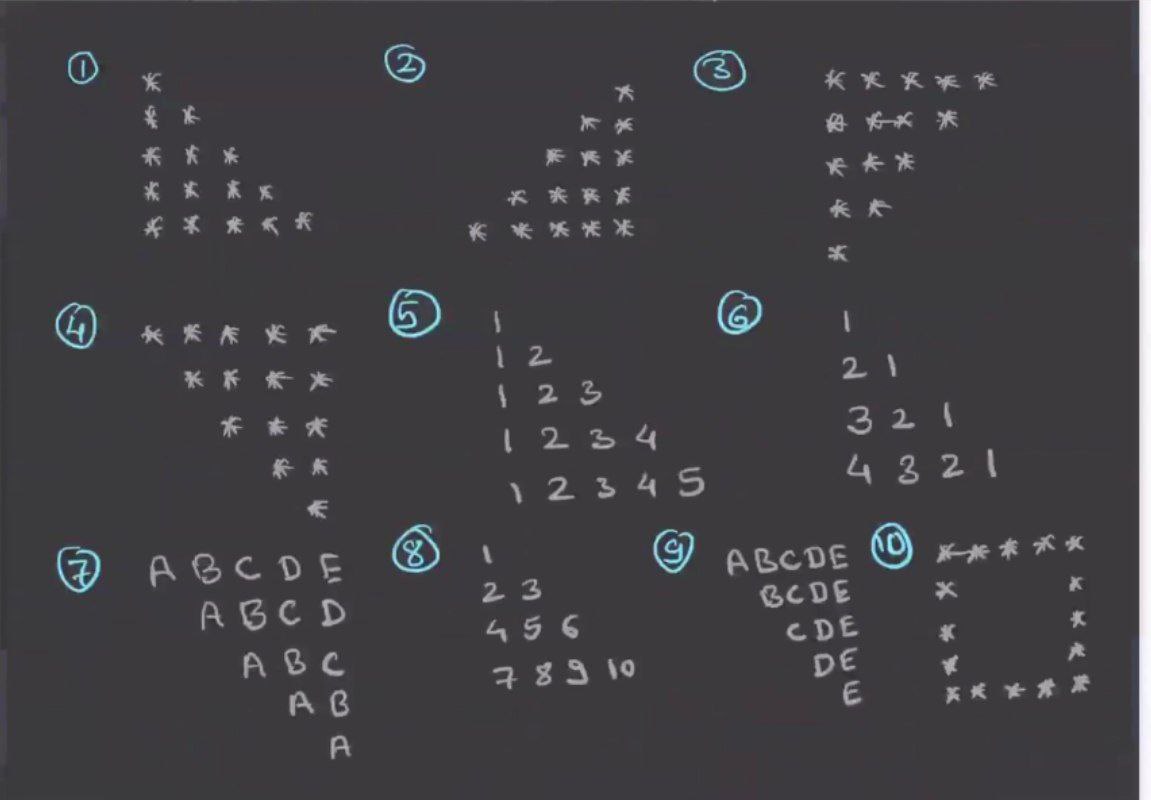 ①
*
* *
* * *
* * * *
* * * * *
②
*
* *
* * *
* * * *
* * * * *
③
* * * * *
* * * *
* * *
* *
*
④
* * * * *
* * * *
* * *
* *
*
⑤
1
1 2
1 2 3
1 2 3 4
1 2 3 4 5
⑥
1
2 1
3 2 1
4 3 2 1
⑦
A B C D E
A B C D
A B C
A B
A
⑧
1
2 3
4 5 6
7 8 9 10
⑨
ABCDE
BCDE
CDE
DE
E
⑩
* * * * *
* *
* *
* *
* * * * *